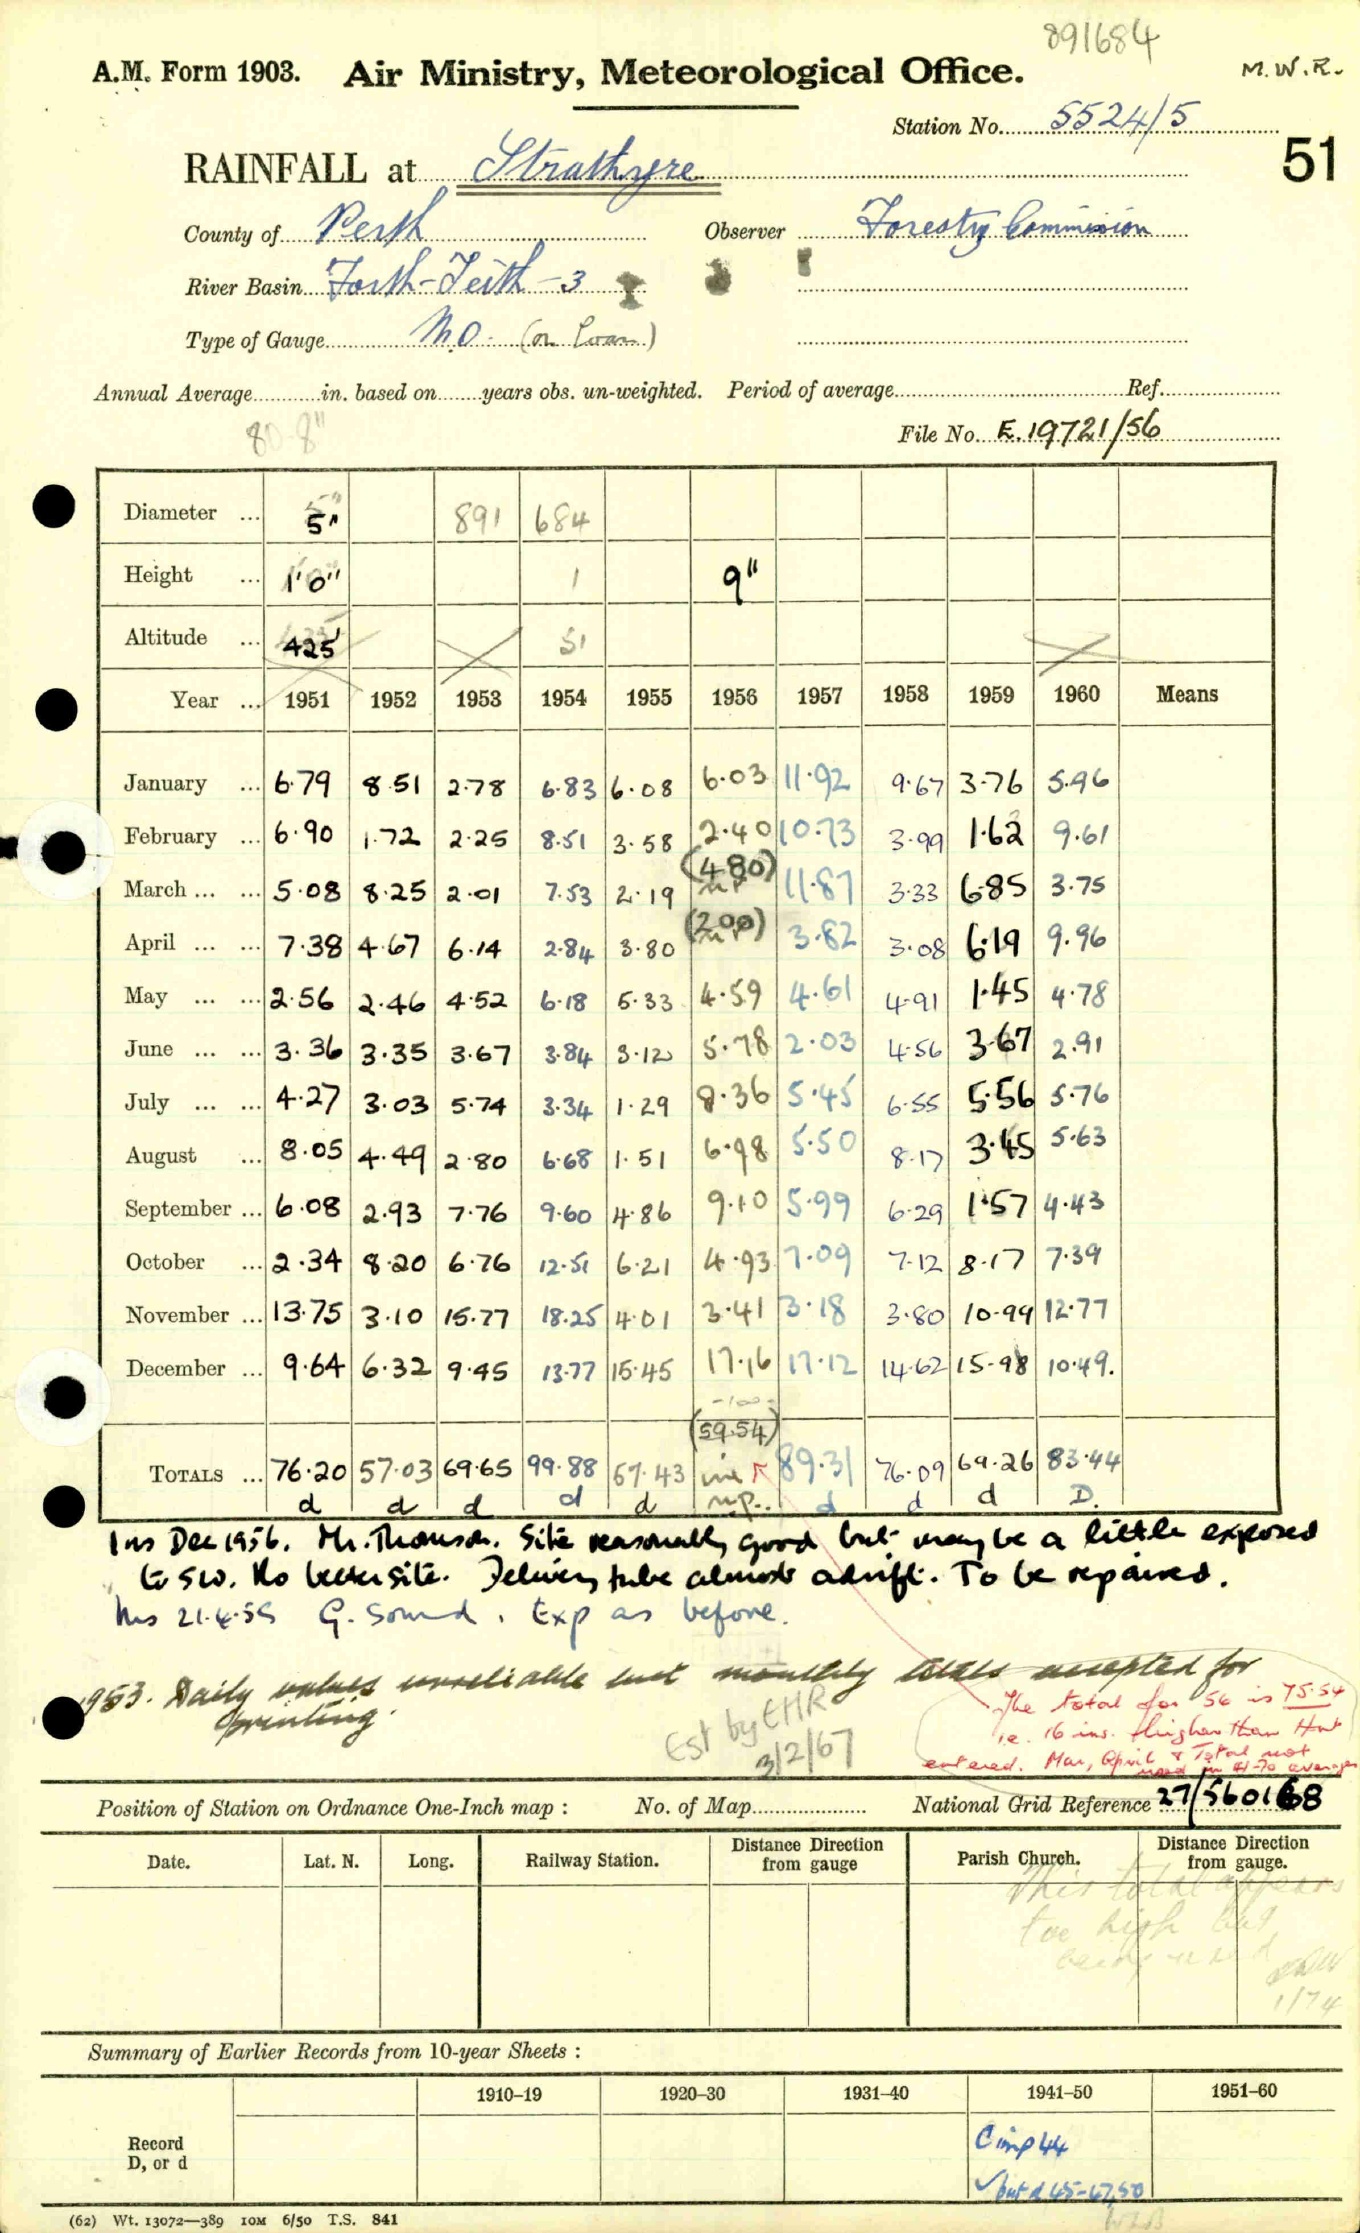 891684
A.M. Form 1903. Air Ministry, Meteorological Office. M.W.R.
Station No. 5524/5
RAINFALL at Strathyre 51
County of Perth Observer Forestry Commission
River Basin Forth-Teith-3
Type of Gauge M.O. (on loan)
Annual Average in. based on years obs. un-weighted. Period of average Ref.
80.8"
File No. E.19721/56
Diameter ... 5" 891 684
Height ... 1'0" 1 9"
Altitude ... 425' 51
Year ... 1951 1952 1953 1954 1955 1956 1957 1958 1959 1960 Means
January ... 6.79 8.51 2.78 6.83 6.08 6.03 11.92 9.67 3.76 5.96
February ... 6.90 1.72 2.25 8.51 3.58 2.40 10.73 3.99 1.62 9.61
March ... ... 5.08 8.25 2.01 7.53 2.19 (4.80) 11.87 3.33 6.85 3.75
April ... ... 7.38 4.67 6.14 2.84 3.80 (2.00) 3.82 3.08 6.19 9.96
May ... ... 2.56 2.46 4.52 6.18 5.33 4.59 4.61 4.91 1.45 4.78
June ... ... 3.36 3.35 3.67 3.84 3.12 5.78 2.03 4.56 3.67 2.91
July ... ... 4.27 3.03 5.74 3.34 1.29 8.36 5.45 6.55 5.56 5.76
August ... 8.05 4.49 2.80 6.68 1.51 6.98 5.50 8.17 3.45 5.63
September ... 6.08 2.93 7.76 9.60 4.86 9.10 5.99 6.29 1.57 4.43
October ... 2.34 8.20 6.76 12.51 6.21 4.93 7.09 7.12 8.17 7.39
November ... 13.75 3.10 15.77 18.25 4.01 3.41 3.18 3.80 10.99 12.77
December ... 9.64 6.32 9.45 13.77 15.45 17.16 17.12 14.62 15.98 10.49.
(59.54)
TOTALS ... 76.20 57.03 69.65 99.88 57.43 89.31 76.09 69.26 83.44
d d d d d d d d D.
Ins Dec 1956. Mr. Thomson. Site reasonably good but may be a little exposed
to SW. No better site. Delivery tube almost adrift. To be repaired.
Ins 21.4.59 G. Sound. Exp as before.
1953. Daily values unreliable but monthly totals accepted for
printing.
Est by EHR
3/2/67
The total for 56 is 75.54
i.e. 16 ins. higher than that
entered. Mar, April & Total not
used in 41-70 average
Position of Station on Ordnance One-Inch map : No. of Map National Grid Reference 27/560168
Date. Lat. N. Long. Railway Station. Distance Direction from gauge Parish Church. Distance Direction from gauge.
This total appears
too high but
being used
1/74
Summary of Earlier Records from 10-year Sheets :
1910–19 1920–30 1931–40 1941–50 1951–60
Record
D, or d
Cimp 44
but d 45-47,50
(62) Wt. 13072—389 10M 6/50 T.S. 841